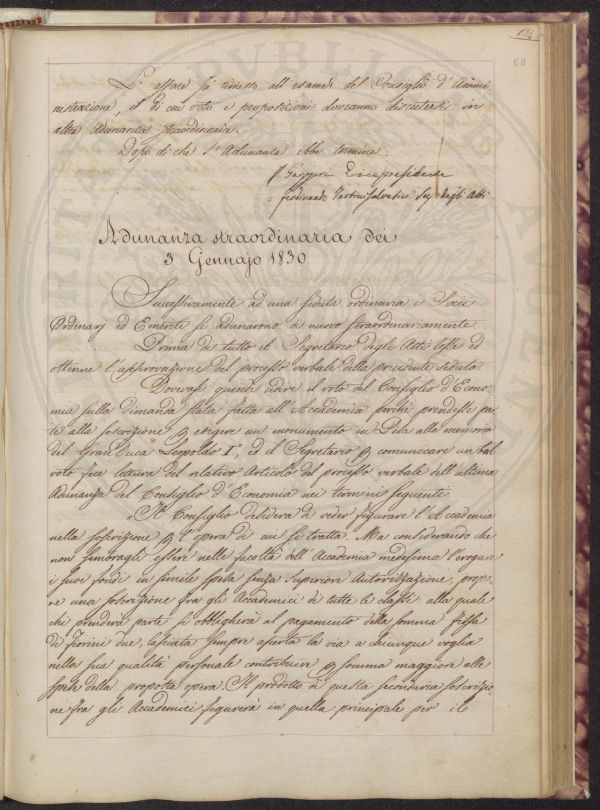 L'affare fu rimesso all'esame del Consiglio d'Ammi
nistrazione, il di cui voto e proposizioni dovranno discutersi in
altra Adunanza straordinaria.
Dopo di che l'Adunanza ebbe termine.
Vicepresidente
Ferdinando Tartini Salvatici Seg. degli Atti
Adunanza straordinaria dei
3 Gennajo 1830
Successivamente ad una seduta ordinaria i Socii
Ordinarj ed Emeriti si adunarono di nuovo straordinariamente.
Prima di tutto il Segretario degli Atti lesse ed
ottenne l'approvazione del processo verbale della precedente seduta.
Dovevasi quindi udire il voto del Consiglio d'Econo-
mia sulla dimanda stata fatta all'Accademia perchè prendesse par
te alla soscrizione p erigere un monumento in Pisa alla memoria
del Gran Duca Leopoldo I°, ed il Segretario p comunicare un tal
voto fece lettura del relativo Articolo del processo verbale dell'ultima
Adunanza del Consiglio d'Economia nei termini seguenti.
"Il Consiglio desidera di veder figurare l'Accademia
nella soscrizione p l'opera di cui si tratta. Ma considerando che
non sembragli essere nelle facoltà dell'Accademia medesima l'erogare
i suoi fondi in simile spesa senza Superiore Autorizzazione, propo-
ne una soscrizione fra gli Accademici di tutte le classi: alla quale
chi prenderà parte si obbligherà al pagamento della somma fissa
di Fiorini due, lasciata sempre aperta la via a chiunque voglia
nella sua qualità personale contribuire p somma maggiore alle
spese della proposta opera. Il prodotto di questa secondaria soscrizio
ne fra gli Accademici figurerà in quella principale per il
68